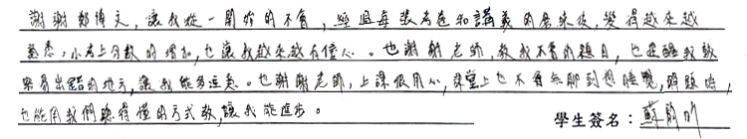 謝謝鄭博文，讓我從一開始的不會，經過每張考卷和講義的磨來後，變得越來越
熟悉，小考上分數的增加，也讓我越來越有信心。也謝謝老師，教我不會的題目，也提醒我較
容易出錯的地方，讓我能多注意。也謝謝老師，上課很用心，課堂上也不會無聊到想睡覺，解題時，
也能用我們聽得懂的方式教，讓我能進步。
學生簽名：蘇